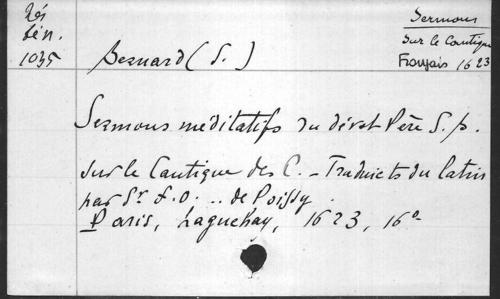 Rés
bén.
1035
Bernard (S.)
Sermons
sur le Cantique
Français 1623
Sermons meditatifs du dévot Père S. b.
sur le Cantique des C. - Traduicts du latin
par Sr F. O. ... de Poissy.
Paris, Laguehay, 1623, 16°